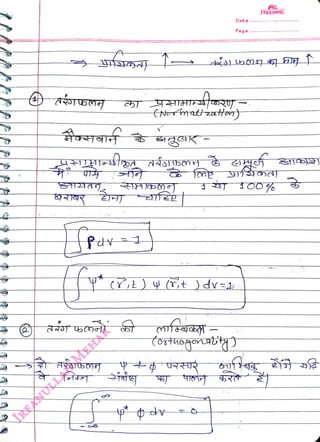 Date
Page
⇒ प्रायिकता ↑ → तरंग फलन का मान ↑
① तरंगफलन का प्रसामान्यीकरण -
(Normalization)
मैक्सबॉर्न के अनुसार -
प्रसामान्यीकृत तरंगफलन के सम्पूर्ण आकाश
में पाये जाने के लिए प्रायिकता
आयतन समाकलन 1 या 100% के
बराबर होना चाहिए |
∫ P dv = 1
∫ ψ* (r⃗,t) ψ (r⃗,t) dv = 1
② तरंग फलनों की लाम्बिकता -
(orthogonality)
→ दो तरंगफलन ψ + ϕ परस्पर लाम्बिक होंगे यदि
वे निम्न संबंध का पालन करते है।
∫ ψ* ϕ dv = 0
-∞
IRFANULLAH MEHAR